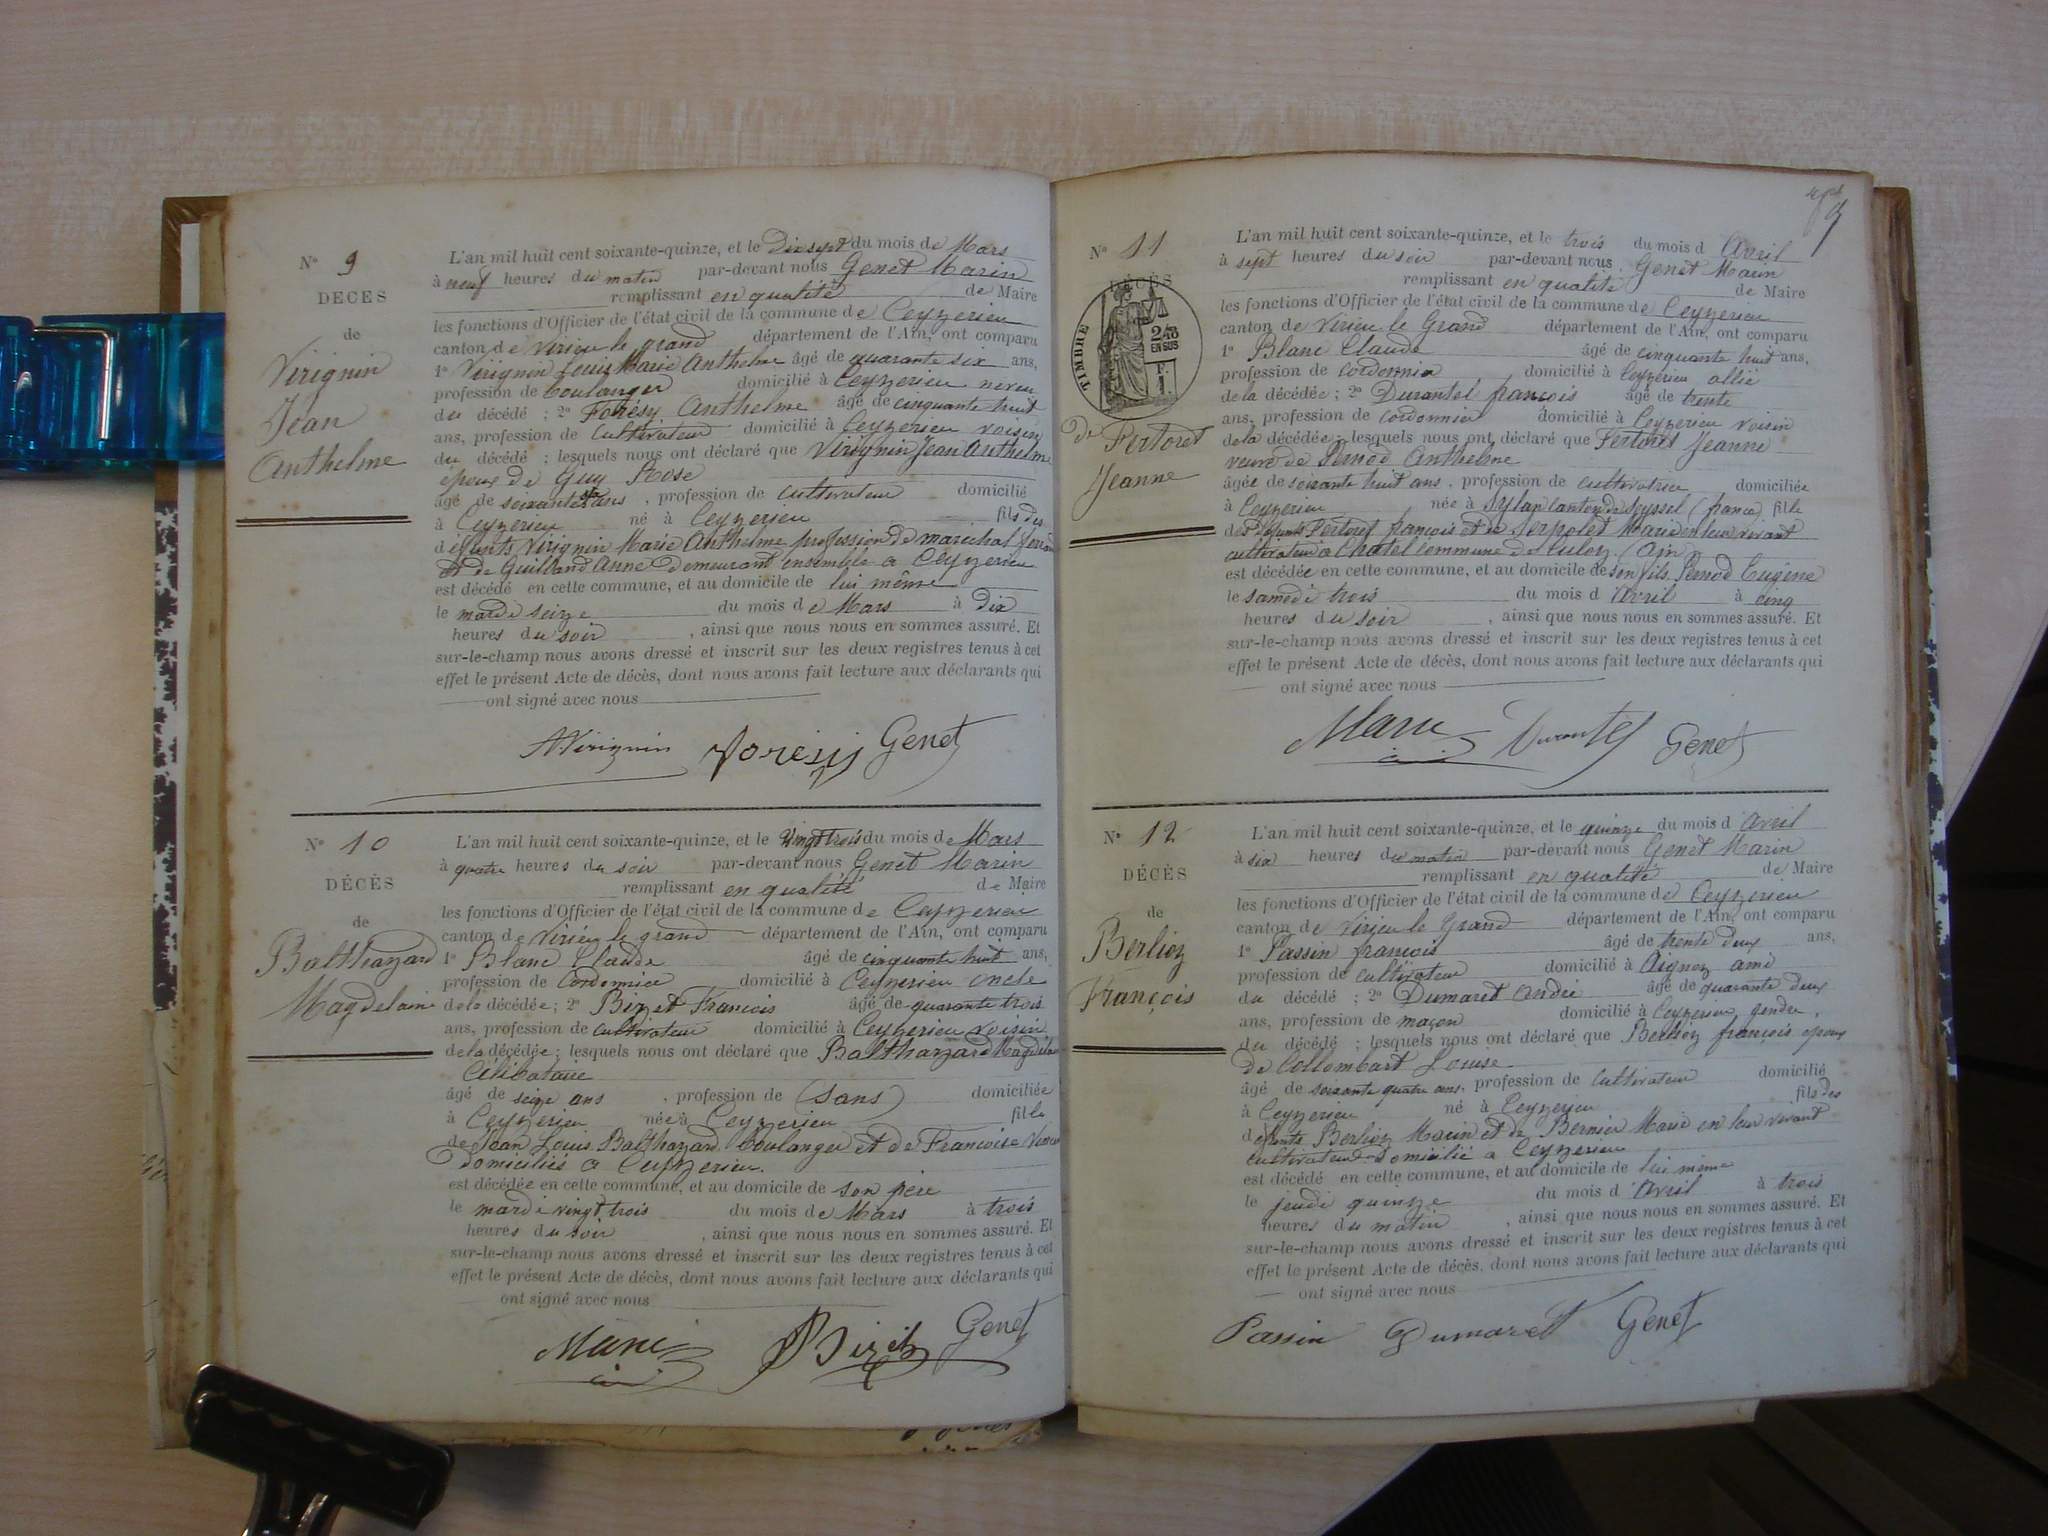 N° 9
DÉCÈS
de
Virignin
Jean
Anthelme
L'an mil huit cent soixante-quinze, et le Dix sept du mois de Mars
à neuf heures du matin par-devant nous Genet Marin
remplissant en qualité de Maire
les fonctions d'Officier de l'état civil de la commune de Ceyzerieu
canton de Virieu le grand département de l'Ain, ont comparu
1° Virignin Louis Marie Anthelme âgé de quarante six ans,
profession de boulanger domicilié à Ceyzerieu neveu
du décédé ; 2° Forésy Anthelme âgé de cinquante huit
ans, profession de Cultivateur domicilié à Ceyzerieu voisin
du décédé ; lesquels nous ont déclaré que Virignin Jean Anthelme
époux de Guy Rose
âgé de soixante ans , profession de cultivateur domicilié
à Ceyzerieu né à Ceyzerieu fils des
défunts Virignin Marie Anthelme profession de marechal
et de Guilland Anne Demeurant ensemble a Ceyzerieu
est décédé en cette commune, et au domicile de lui même
le mardi seize du mois de Mars à dix
heures du soir , ainsi que nous nous en sommes assuré. Et
sur-le-champ nous avons dressé et inscrit sur les deux registres tenus à cet
effet le présent Acte de décès, dont nous avons fait lecture aux déclarants qui
ont signé avec nous
AVirignin Forésy Genet
N° 10
DÉCÈS
de
Balthazard
Magdelaine
L'an mil huit cent soixante-quinze, et le vingt trois du mois de Mars
à quatre heures du soir par-devant nous Genet Marin
remplissant en qualité de Maire
les fonctions d'Officier de l'état civil de la commune de Ceyzerieu
canton de Virieu le grand département de l'Ain, ont comparu
1° Blanc Claude âgé de cinquante huit ans,
profession de Cordonnier domicilié à Ceyzerieu oncle
de la décédée ; 2° Bizet François âgé de quarante trois
ans, profession de cultivateur domicilié à Ceyzerieu voisin
de la décédée ; lesquels nous ont déclaré que Balthazard
Célibataire
âgé de seize ans , profession de (sans) domiciliée
à Ceyzerieu née à Ceyzerieu fille
de Jean Louis Balthazard boulanger et de Françoise
domiciliés a Ceyzerieu.
est décédée en cette commune, et au domicile de son père
le mardi vingt trois du mois de Mars à trois
heures du soir , ainsi que nous nous en sommes assuré. Et
sur-le-champ nous avons dressé et inscrit sur les deux registres tenus à cet
effet le présent Acte de décès, dont nous avons fait lecture aux déclarants qui
ont signé avec nous
Bizet Genet
9
N° 11
DÉCÈS
TIMBRE
2/10
EN SUS
F.
1.
de Fertoret
Jeanne
L'an mil huit cent soixante-quinze, et le trois du mois d'Avril
à sept heures du soir par-devant nous Genet Marin
remplissant en qualité de Maire
les fonctions d'Officier de l'état civil de la commune de Ceyzerieu
canton de Virieu le Grand département de l'Ain, ont comparu
1° Blanc Claude âgé de cinquante huit ans,
profession de cordonnier domicilié à Ceyzerieu allié
de la décédée ; 2° Durantel françois âgé de trente
ans, profession de cordonnier domicilié à Ceyzerieu voisin
de la décédée ; lesquels nous ont déclaré que Fertoret Jeanne
veuve de Pernod Anthelme
âgée de soixante huit ans , profession de cultivatrice domiciliée
à Ceyzerieu née à Sylan canton de Seyssel (france) fille
des Défunts Fertoret françois et de Serpolet Marie en leur vivant
cultivateur a Chatel commune de Culoz. (Ain)
est décédée en cette commune, et au domicile de son fils Pernod Eugène
le samedi trois du mois d'Avril à cinq
heures du soir , ainsi que nous nous en sommes assuré. Et
sur-le-champ nous avons dressé et inscrit sur les deux registres tenus à cet
effet le présent Acte de décès, dont nous avons fait lecture aux déclarants qui
ont signé avec nous
Durantel Genet
N° 12
DÉCÈS
de
Berlioz
François
L'an mil huit cent soixante-quinze, et le quinze du mois d'Avril
à six heures du matin par-devant nous Genet Marin
remplissant en qualité de Maire
les fonctions d'Officier de l'état civil de la commune de Ceyzerieu
canton de Virieu le Grand département de l'Ain, ont comparu
1° Passin françois âgé de trente deux ans,
profession de cultivateur domicilié à Aignoz ami
du décédé ; 2° Dumaret André âgé de quarante deux
ans, profession de maçon domicilié à Ceyzerieu gendre,
du décédé ; lesquels nous ont déclaré que Berlioz françois epoux
de Collombart Louise
âgé de soixante quatre ans, profession de cultivateur domicilié
à Ceyzerieu né à Ceyzerieu fils des
défunts Berlioz Marin et de Bernier Marie en leur vivant
cultivateurs domicilié a Ceyzerieu
est décédé en cette commune, et au domicile de lui même
le jeudi quinze du mois d'Avril à trois
heures du matin , ainsi que nous nous en sommes assuré. Et
sur-le-champ nous avons dressé et inscrit sur les deux registres tenus à cet
effet le présent Acte de décès, dont nous avons fait lecture aux déclarants qui
ont signé avec nous
Passin Dumaret Genet